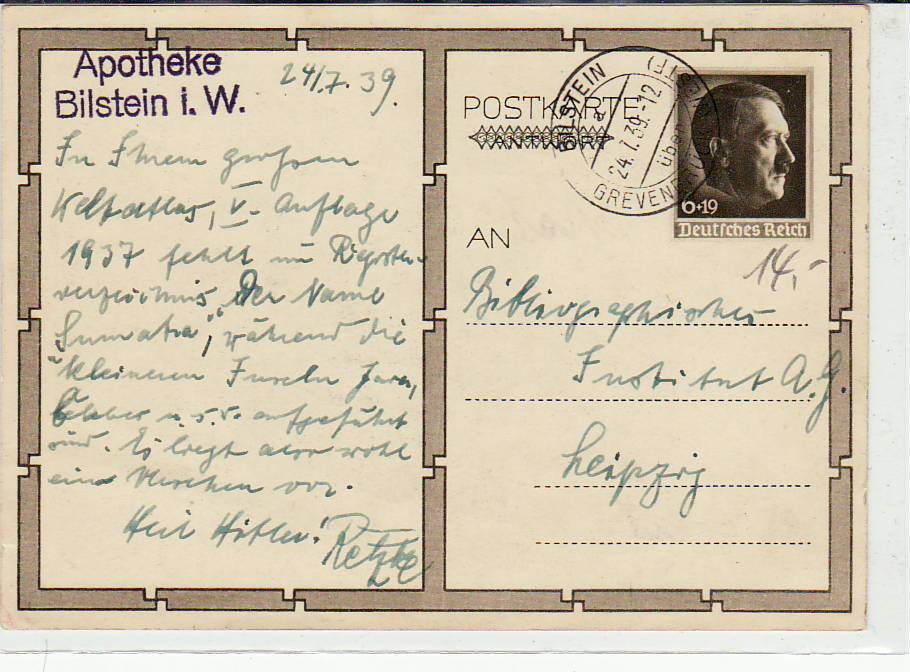 Apotheke
Bilstein i. W.
24/7. 39.
In Ihrem grossen
Weltatlas, V. Auflage
1937 fehlt im Register-
verzeichnis "Der Name
Sumatra", während die
kleineren Inseln Java,
Celebes u. s. w. aufgeführt
sind. Es liegt also wohl
ein Versehen vor.
Heil Hitler!
POSTKARTE
ANTWORT
BILSTEIN
a
24.7.39.-12
über
(WESTF)
6+19
Deutsches Reich
14,-
AN
Bibliographisches
Institut A.G.
Leipzig